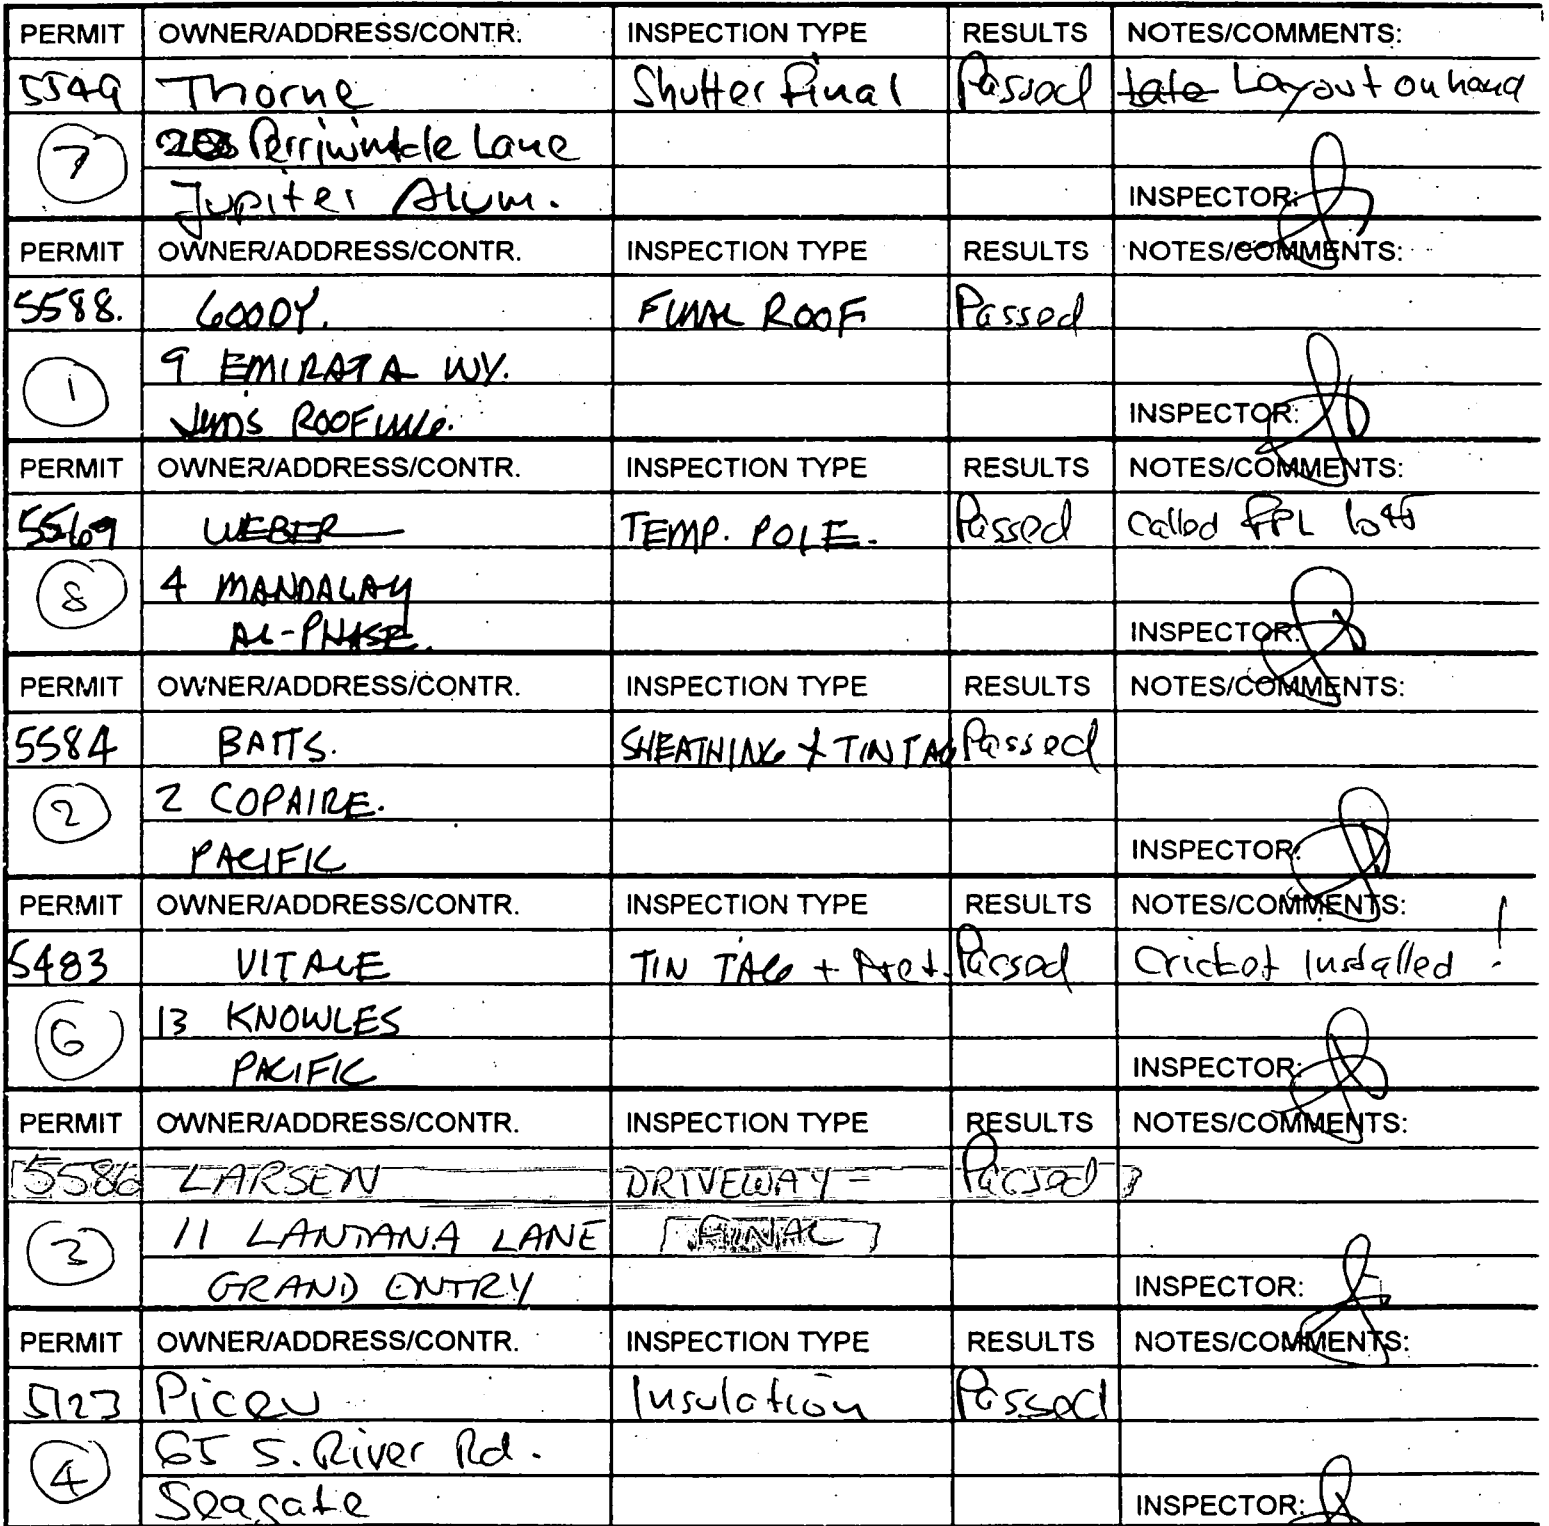 PERMIT OWNER/ADDRESS/CONTR. INSPECTION TYPE RESULTS NOTES/COMMENTS:
5549 Thorne Shutter Final Passed Layout on hand
7 Perriwinkle Lane
Jupiter Alum. INSPECTOR:
PERMIT OWNER/ADDRESS/CONTR. INSPECTION TYPE RESULTS NOTES/COMMENTS:
5588. GOODY. FINAL ROOF Passed
1 9 EMIRATA WY.
ROOFING. INSPECTOR:
PERMIT OWNER/ADDRESS/CONTR. INSPECTION TYPE RESULTS NOTES/COMMENTS:
5569 WEBER TEMP. POLE. Passed Called FPL
8 4 MANDALAY
AL-PHASE. INSPECTOR:
PERMIT OWNER/ADDRESS/CONTR. INSPECTION TYPE RESULTS NOTES/COMMENTS:
5584 BATTS. SHEATHING + TIN TAG Passed
2 2 COPAIRE.
PACIFIC INSPECTOR:
PERMIT OWNER/ADDRESS/CONTR. INSPECTION TYPE RESULTS NOTES/COMMENTS:
5483 VITALE TIN TAG + Passed Cricket Installed !
6 13 KNOWLES
PACIFIC INSPECTOR:
PERMIT OWNER/ADDRESS/CONTR. INSPECTION TYPE RESULTS NOTES/COMMENTS:
5586 LARSEN DRIVEWAY = Passed
3 11 LANTANA LANE FINAL
GRAND ENTRY INSPECTOR:
PERMIT OWNER/ADDRESS/CONTR. INSPECTION TYPE RESULTS NOTES/COMMENTS:
5123 Piceu Insulation Passed
4 65 S. River Rd.
Seagate INSPECTOR: